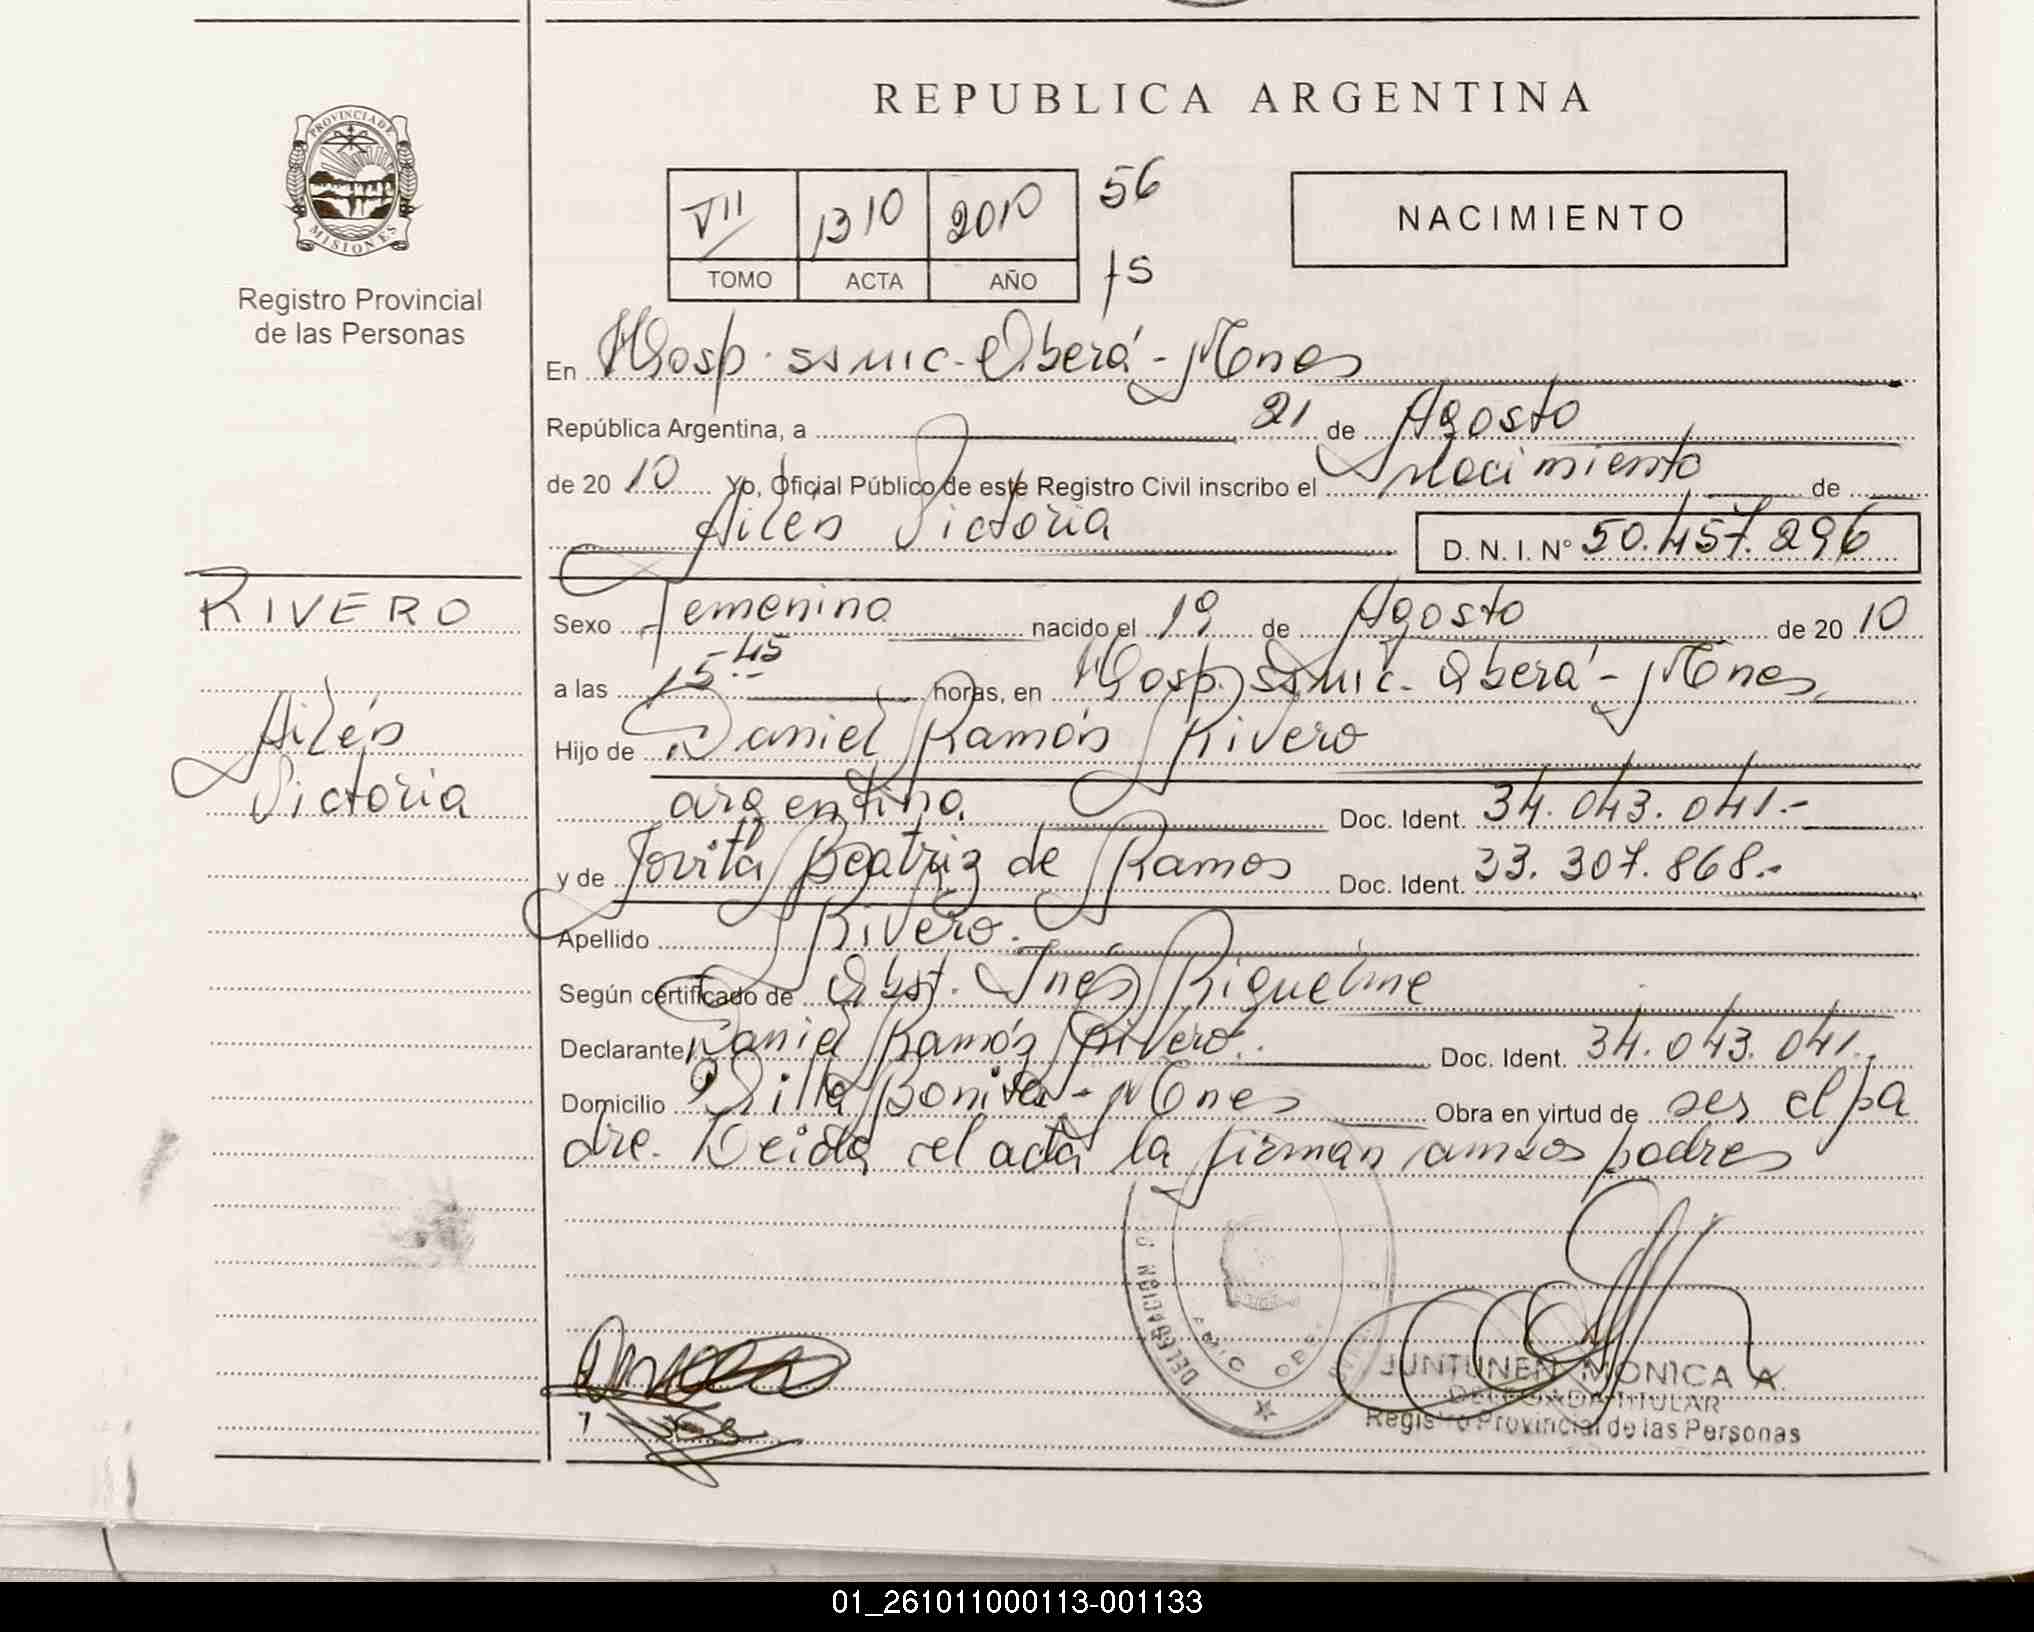 REPUBLICA ARGENTINA
PROVINCIA DE
MISIONES
Registro Provincial
de las Personas
VII 1310 2010 56
TOMO ACTA AÑO fs
NACIMIENTO
En Hosp. ssmic. Oberá - Mnes
República Argentina, a 21 de Agosto
de 20 10 Yo, Oficial Público de este Registro Civil inscribo el Nacimiento de
Ailén Victoria D. N. I. N° 50.457.296
RIVERO
Ailén
Victoria
Sexo Femenino nacido el 19 de Agosto de 20 10
a las 15.45 horas, en Hosp. Ssmic. Oberá - Mnes
Hijo de Daniel Ramón Rivero
argentino Doc. Ident. 34.043.041.-
y de Jovita Beatriz de Ramos Doc. Ident. 33.307.868.-
Apellido Rivero.
Según certificado de Obst. Inés Riquelme
Declarante Daniel Ramón Rivero. Doc. Ident. 34.043.041.
Domicilio Villa Bonita - Mnes Obra en virtud de ser el pa
dre. Leida el acta la firman ambos padres
JUNTUNEN MONICA A.
DELEGADA TITULAR
Registro Provincial de las Personas
01_261011000113-001133